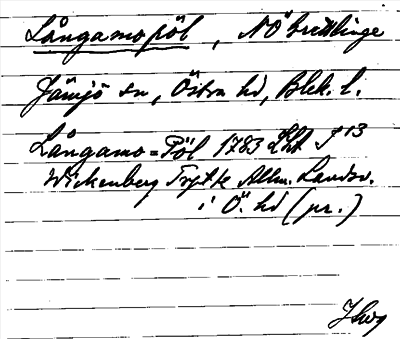 Långamo pöl, NÖ
Jämjö sn, Östra hd, Blek. l.
Långamo=Pöl 1783 Lht J 13
Wickenberg Tryckt Allm. Landsv.
i Ö. hd (pr.)